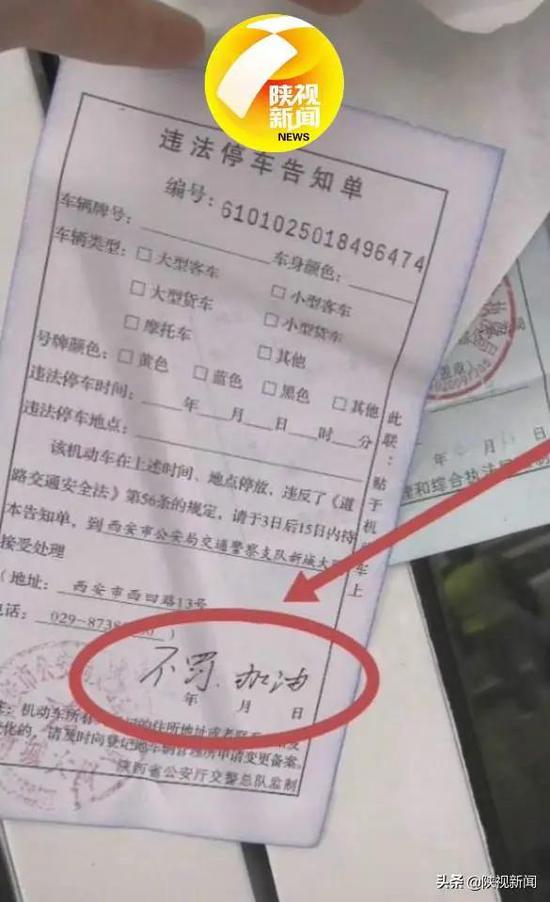 陕视
新闻
NEWS
违法停车告知单
编号：6101025018496474
车辆牌号：车身颜色：
车辆类型：□大型客车 □小型客车
□大型货车 □小型货车
□摩托车 □其他
号牌颜色：□黄色 □蓝色 □黑色 □其他
违法停车时间：年 月 日 时 分
违法停车地点：
该机动车在上述时间、地点停放，违反了《道
路交通安全法》第56条的规定，请于3日后15日内持
本告知单，到西安市公安局交通警察支队新城大
接受处理
（地址：西安市西四路13号
电话：029-8738）
不罚.加油
年 月 日
注：机动车所有
的住所地址或者联系
化的，请及时向登记地车辆管理所申请变更备案。
陕西省公安厅交警总队监制
此联：贴于机
车上
理和综合执法局
头条 @陕视新闻